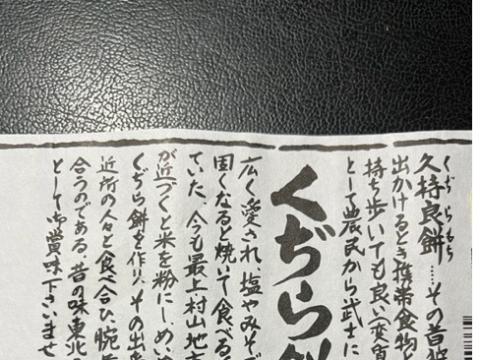 久持良餅……その昔
くぢらもち
出かけるとき携帯食物
持ち歩いても良い変質
として農民から武士に
くぢら餅
広く愛され塩やみそで
固くなると焼いて食べる
ていた、今も最上村山地方
が近づくと米を粉にし、め
くぢら餅を作り、その出来
近所の人々と食べ合ひ腕
合うのである、昔の味東北の
として御賞味下さいませ